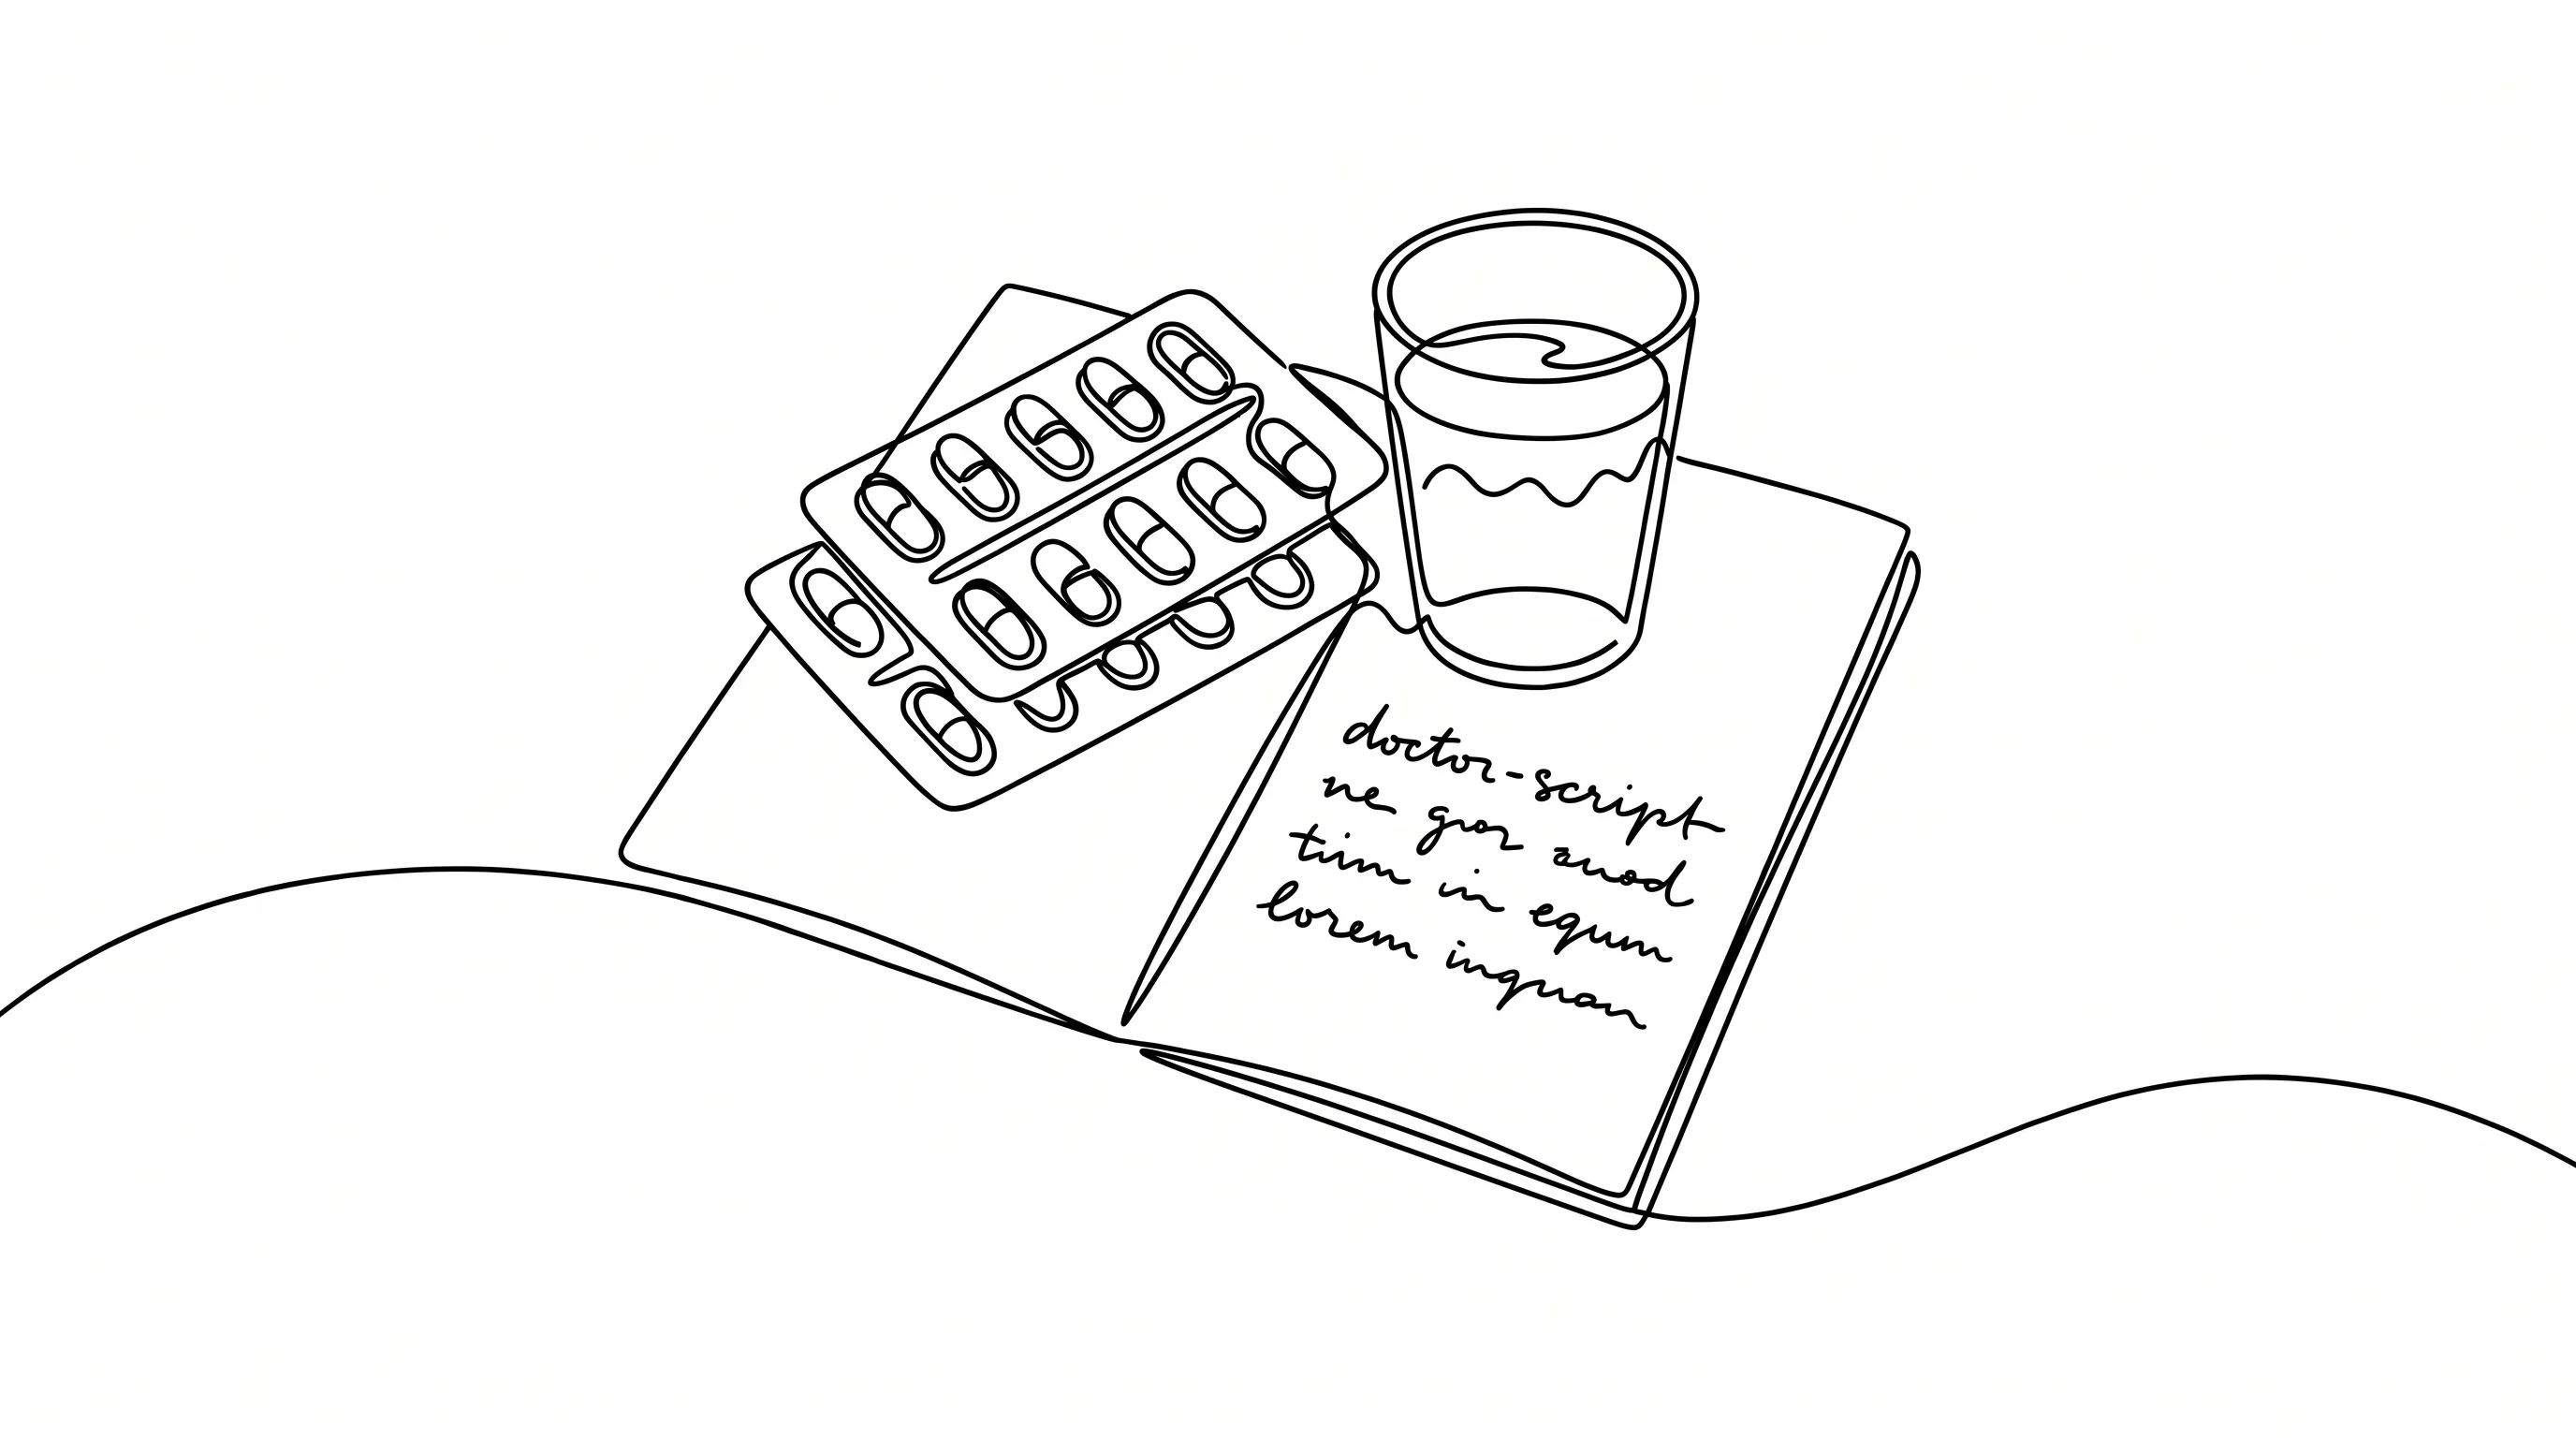 doctor-script
ne gror auod
tim in equm
lorem inquan